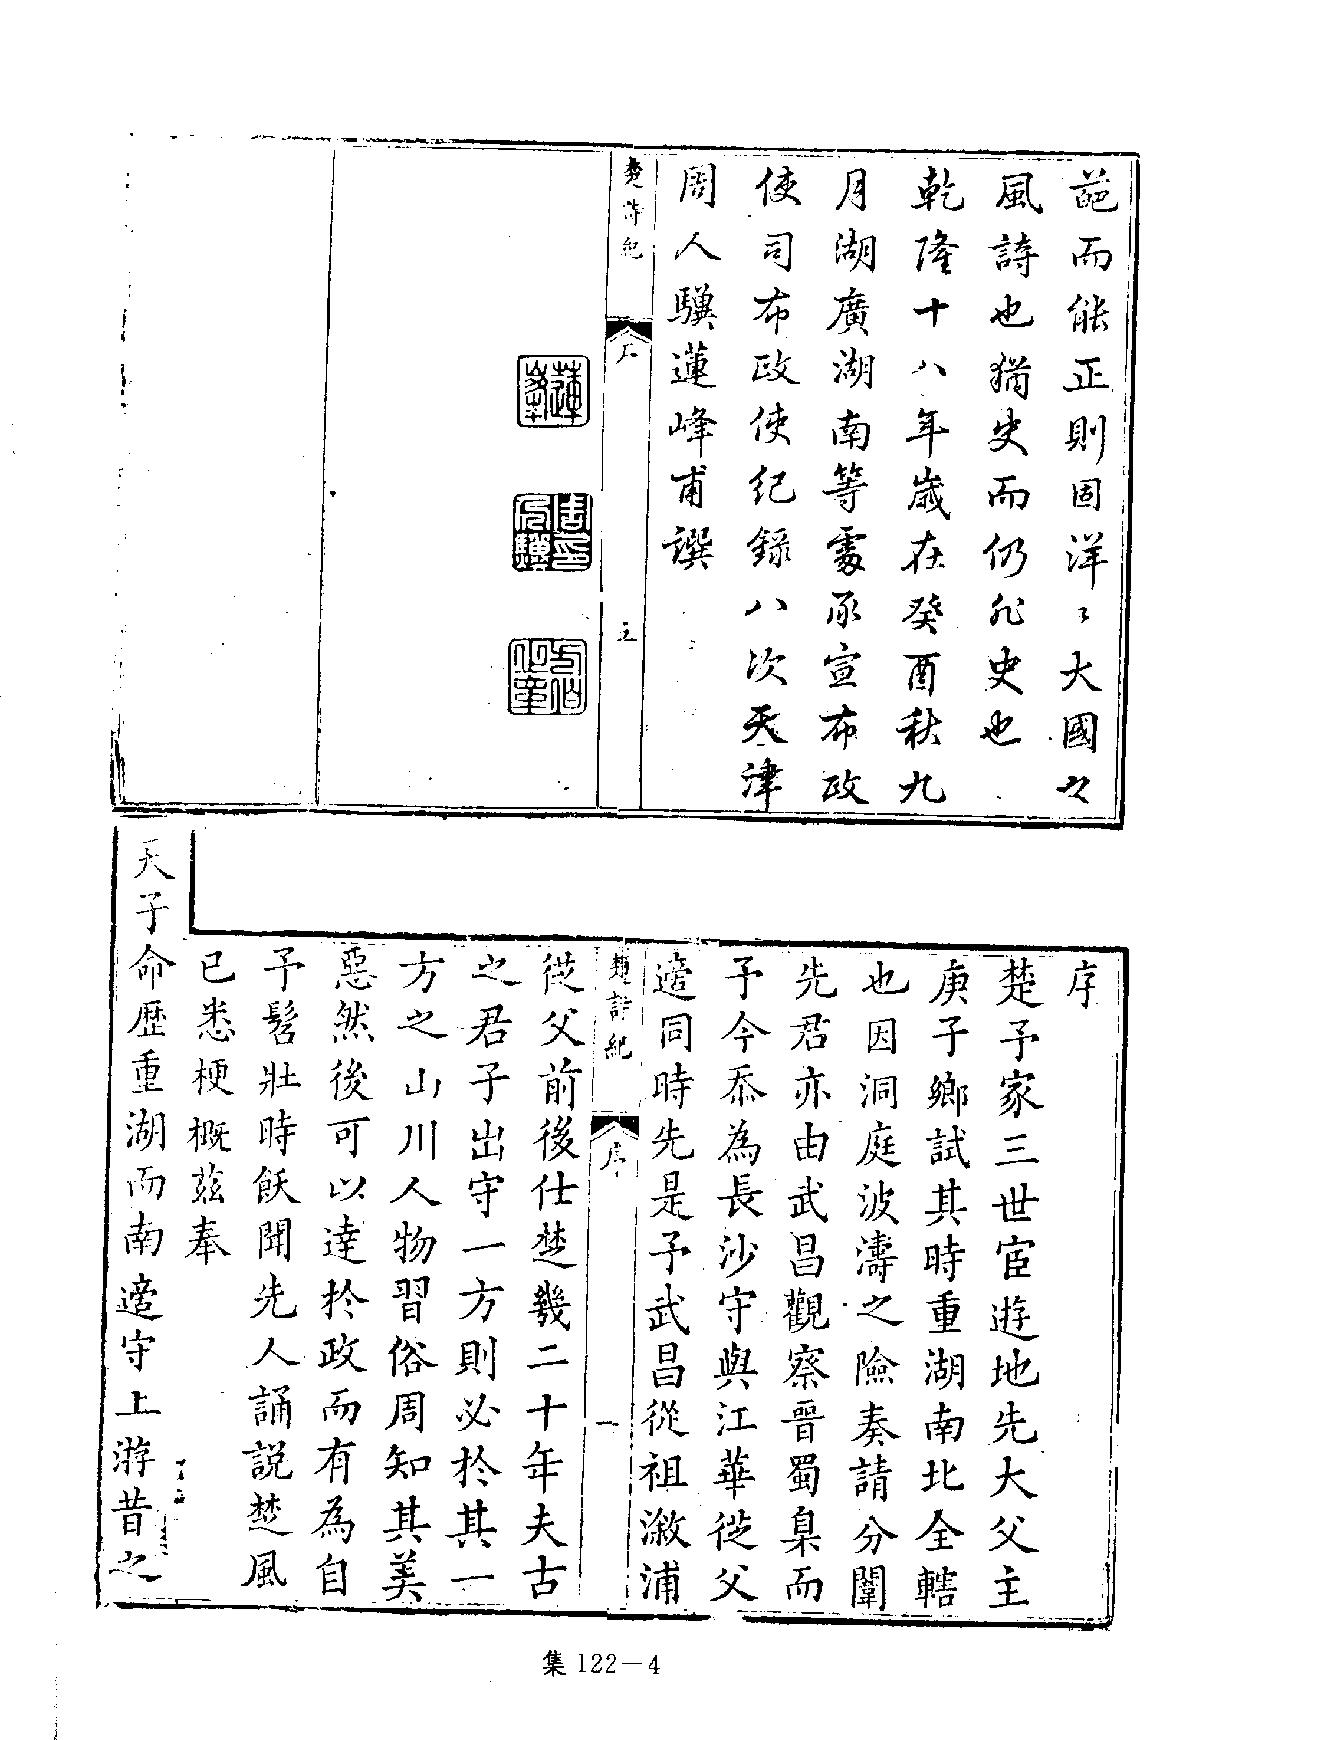 葩而能正則固洋〻大國之
風詩也猶史而仍非史也
乾隆十八年歲在癸酉秋九
月湖廣湖南等處承宣布政
使司布政使紀錄八次天津
周人驥蓮峰甫譔
楚詩紀
序
五
蓮峯
周人驥印
序
楚予家三世宦遊地先大父主
庚子鄉試其時重湖南北全轄
也因洞庭波濤之險奏請分闈
先君亦由武昌觀察晉蜀臬而
予今忝為長沙守與江華從父
適同時先是予武昌從祖溆浦
楚詩紀
序
一
從父前後仕楚幾二十年夫古
之君子出守一方則必於其一
方之山川人物習俗周知其美
惡然後可以達於政而有為自
予髫壯時飫聞先人誦說楚風
已悉梗概茲奉
天子命歷重湖而南適守上游昔之
集122—4